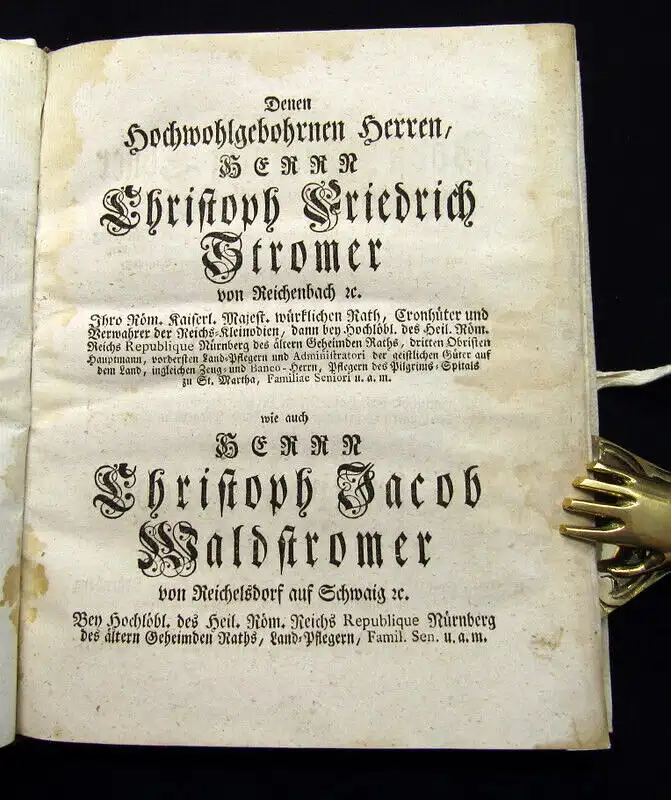 Denen
Hochwohlgebohrnen Herren,
HERRN
Christoph Friedrich
Stromer
von Reichenbach ꝛc.
Ihro Röm. Kaiserl. Majest. würklichen Rath, Cronhüter und
Verwahrer der Reichs-Kleinodien, dann bey Hochlöbl. des Heil. Röm.
Reichs Republique Nürnberg des ältern Geheimden Raths, dritten Obristen
Hauptmann, vordersten Land-Pflegern und Administratori der geistlichen Güter auf
dem Land, ingleichen Zeug- und Banco-Herrn, Pflegern des Pilgrims-Spitals
zu St. Martha, Familiae Seniori u. a. m.
wie auch
HERRN
Christoph Jacob
Waldstromer
von Reichelsdorf auf Schwaig ꝛc.
Bey Hochlöbl. des Heil. Röm. Reichs Republique Nürnberg
des ältern Geheimden Raths, Land-Pflegern, Famil. Sen. u. a. m.